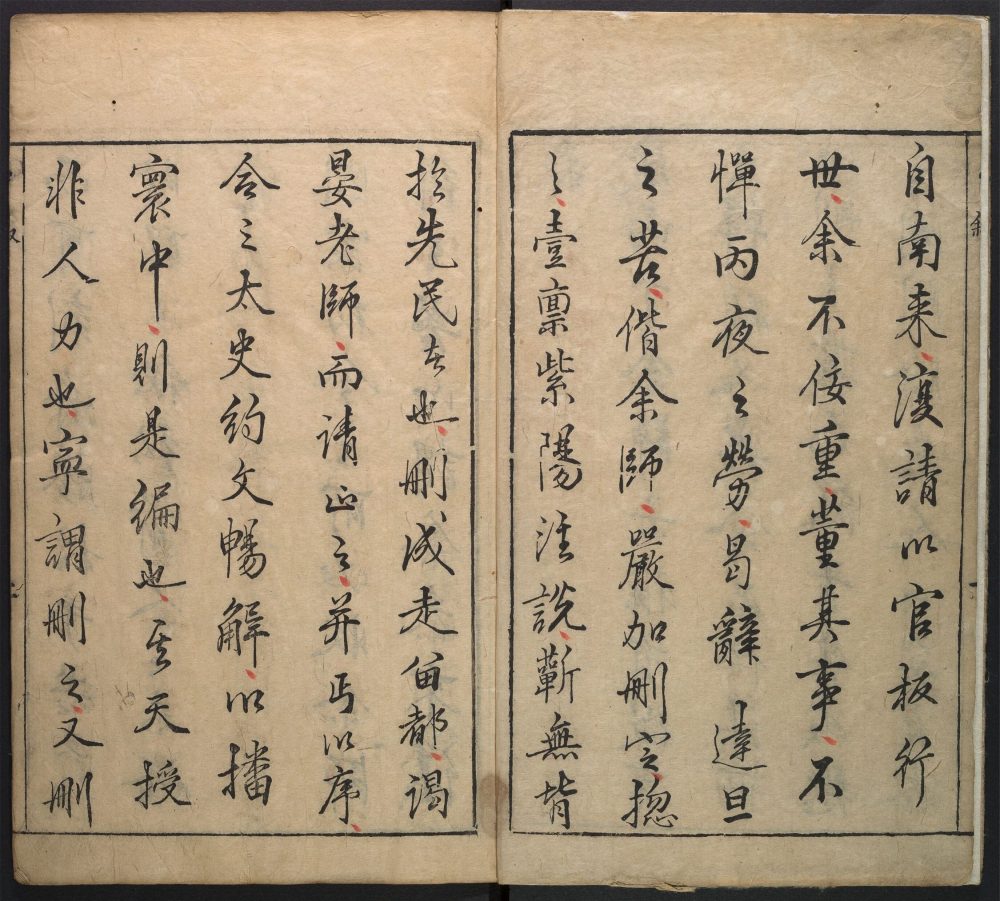 自南来、復請以官板行
世、余不佞重、董其事、不
憚丙夜之勞、曷辭達旦
之苦、偕余師、嚴加刪定、揔
之、壹稟紫陽注說、蘄無背
於先民者也、刪成走留都、謁
晏老師、而請正之、并丐以序、
合之太史約文暢解、以播
寰中、則是編也、其天授
非人力也、寧謂刪之、又刪